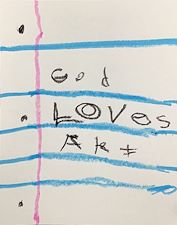 God
LOVes
ARt